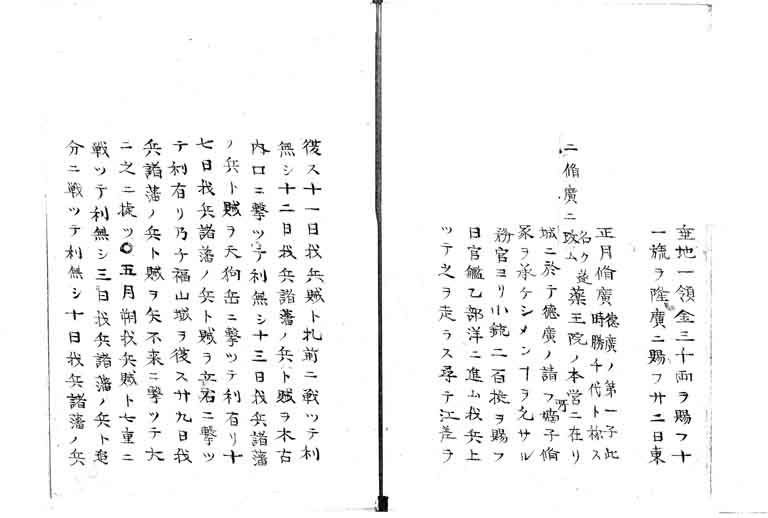 垂地一領金三十両ヲ賜フ十
一旒ヲ隆廣ニ賜フ廿二日東
正月脩廣徳廣ノ第一子此
時勝千代ト称ス
名ク遂
ニ脩廣ニ改ム
薬王院ノ本営ニ在リ
城ニ於テ徳廣ノ請フ嫡子脩
冢ヲ承ケシメンヿヲ允サル
務官ヨリ小銃二百梃ヲ賜フ
日官艦乙部洋ニ進ム我兵上
ツテ之ヲ走ラス尋テ江差ヲ
復ス十一日我兵賊ト札前ニ戦ツテ利
無シ十二日我兵諸藩ノ兵ト賊ヲ木古
内口ニ撃ツテ利無シ十三日我兵諸藩
ノ兵ト賊ヲ天狗岳ニ撃ツテ利有リ十
七日我兵諸藩ノ兵ト賊ヲ立石ニ撃ツ
テ利有リ乃チ福山城ヲ復ス廿九日我
兵諸藩ノ兵ト賊ヲ矢不来ニ撃ツテ大
ニ之ニ捷ツ○五月朔我兵賊ト七重ニ
戦ツテ利無シ三日我兵諸藩ノ兵ト追
分ニ戦ツテ利無シ十日我兵諸藩ノ兵